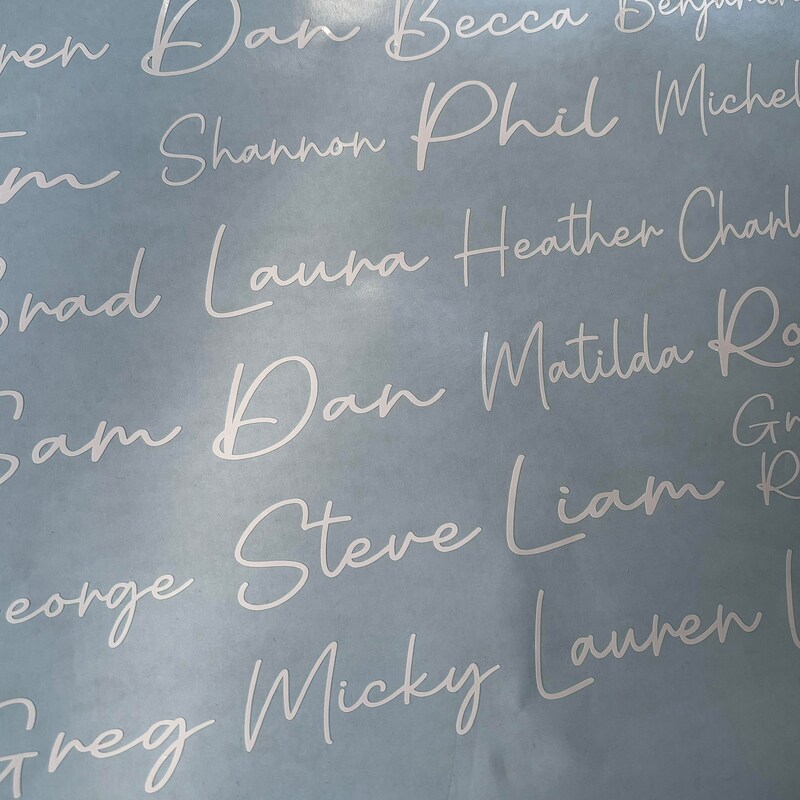 Dan Becca Benjamin
Shannon Phil Michel
Brad Laura Heather Charl
Sam Dan Matilda Ro
George Steve Liam Gr
R
Greg Micky Lauren